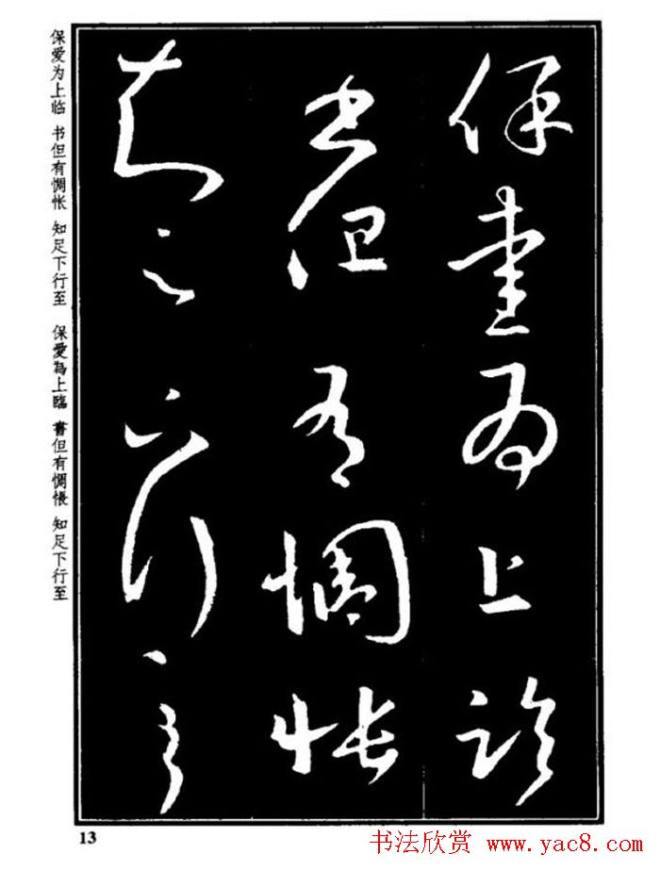 保爱为上临 书但有惆怅 知足下行至 保愛為上臨 書但有惆悵 知足下行至
保愛為上臨
書但有惆悵
知足下行至
13
书法欣赏 www.yac8.com